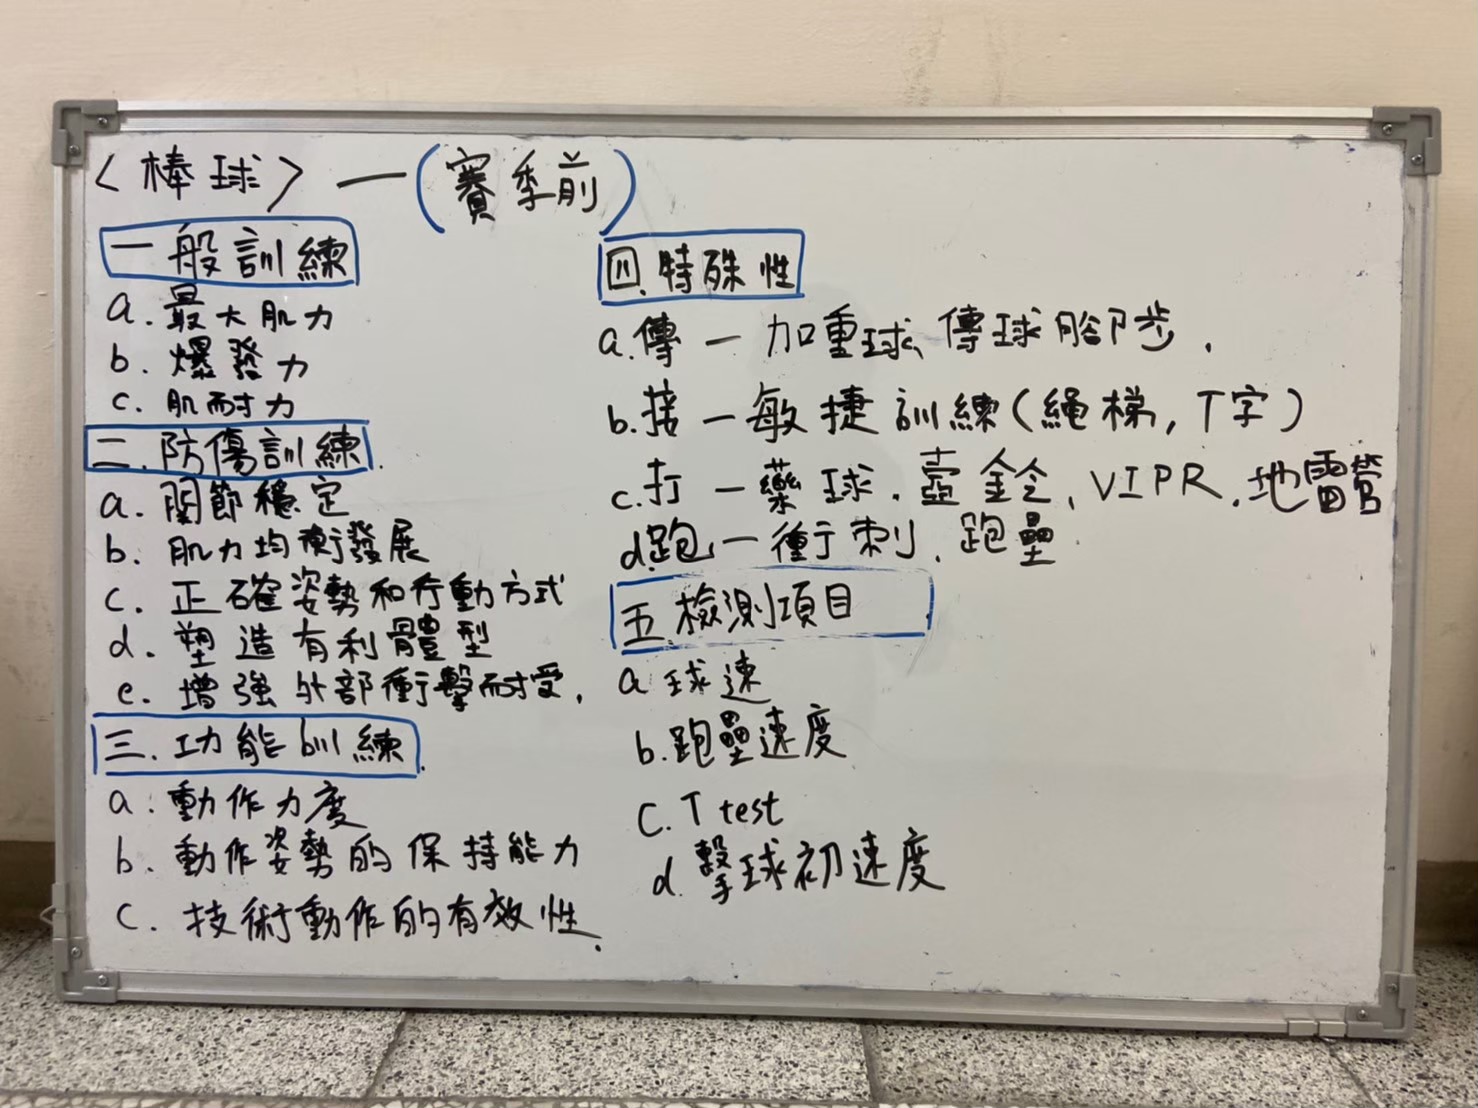 <棒球>—(賽季前)
一般訓練
a. 最大肌力
b. 爆發力
c. 肌耐力
二.防傷訓練.
a. 関節穩定
b. 肌力均衡發展
c. 正確姿勢和行動方式
d. 塑造有利體型
e. 增強外部衝擊耐受.
三.功能訓練.
a. 動作力度
b. 動作姿勢的保持能力
c. 技術動作的有效性.
四.特殊性
a.傳—加重球、傳球腳步.
b.接—敏捷訓練(繩梯,T字)
c.打—藥球.壺鈴、VIPR.地雷管
d.跑—衝刺.跑壘
五.檢測項目
a 球速
b.跑壘速度
C. T test
d.擊球初速度